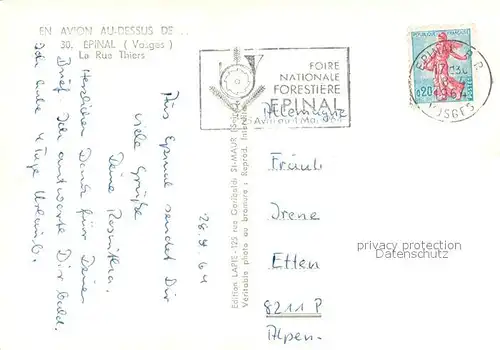 EN AVION AU-DESSUS DE ...
30. EPINAL (Vosges)
La Rue Thiers
FOIRE
NATIONALE
FORESTIÈRE
EPINAL
REPUBLIQUE FRANÇAISE
0,20
EPINAL R.P.
VOSGES
Allemagne
26.4.64
Aus Epinal sendet Dir
viele Grüße
Deine Roswitha.
Herzlichen Dank für Deinen
Brief. Ich antworte Dir bald.
Ich habe 4 Tage Urlaub.
Edition LAPIE - 125 rue Garibaldi ST-MAUR (Seine)
Véritable photo au bromure : Reprod. Interdite
Fräul.
Irene
Etten
8211 P
Alpen.
privacy protection
Datenschutz